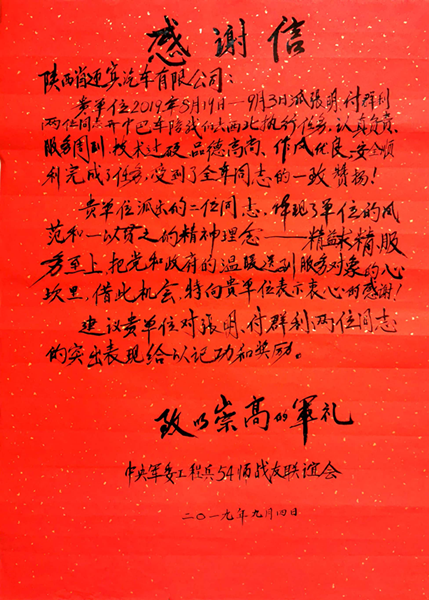 感谢信
陕西省迎宾汽车有限公司：
贵单位2019年5月19日—9月3日派张明、付群利
两位同志开中巴车陪我们去西北执行任务，认真负责、
服务周到、技术过硬、品德高尚、作风优良、安全顺
利完成了任务，受到了全车同志的一致赞扬！
贵单位派出的二位同志，体现了单位的风
范和一以贯之的精神理念——精益求精、服
务至上，把党和政府的温暖送到服务对象的心
坎里，借此机会，特向贵单位表示衷心的感谢！
建议贵单位对张明、付群利两位同志
的突出表现给以记功和奖励。
致以崇高的军礼
中央军委工程兵54师战友联谊会
二〇一九年九月四日